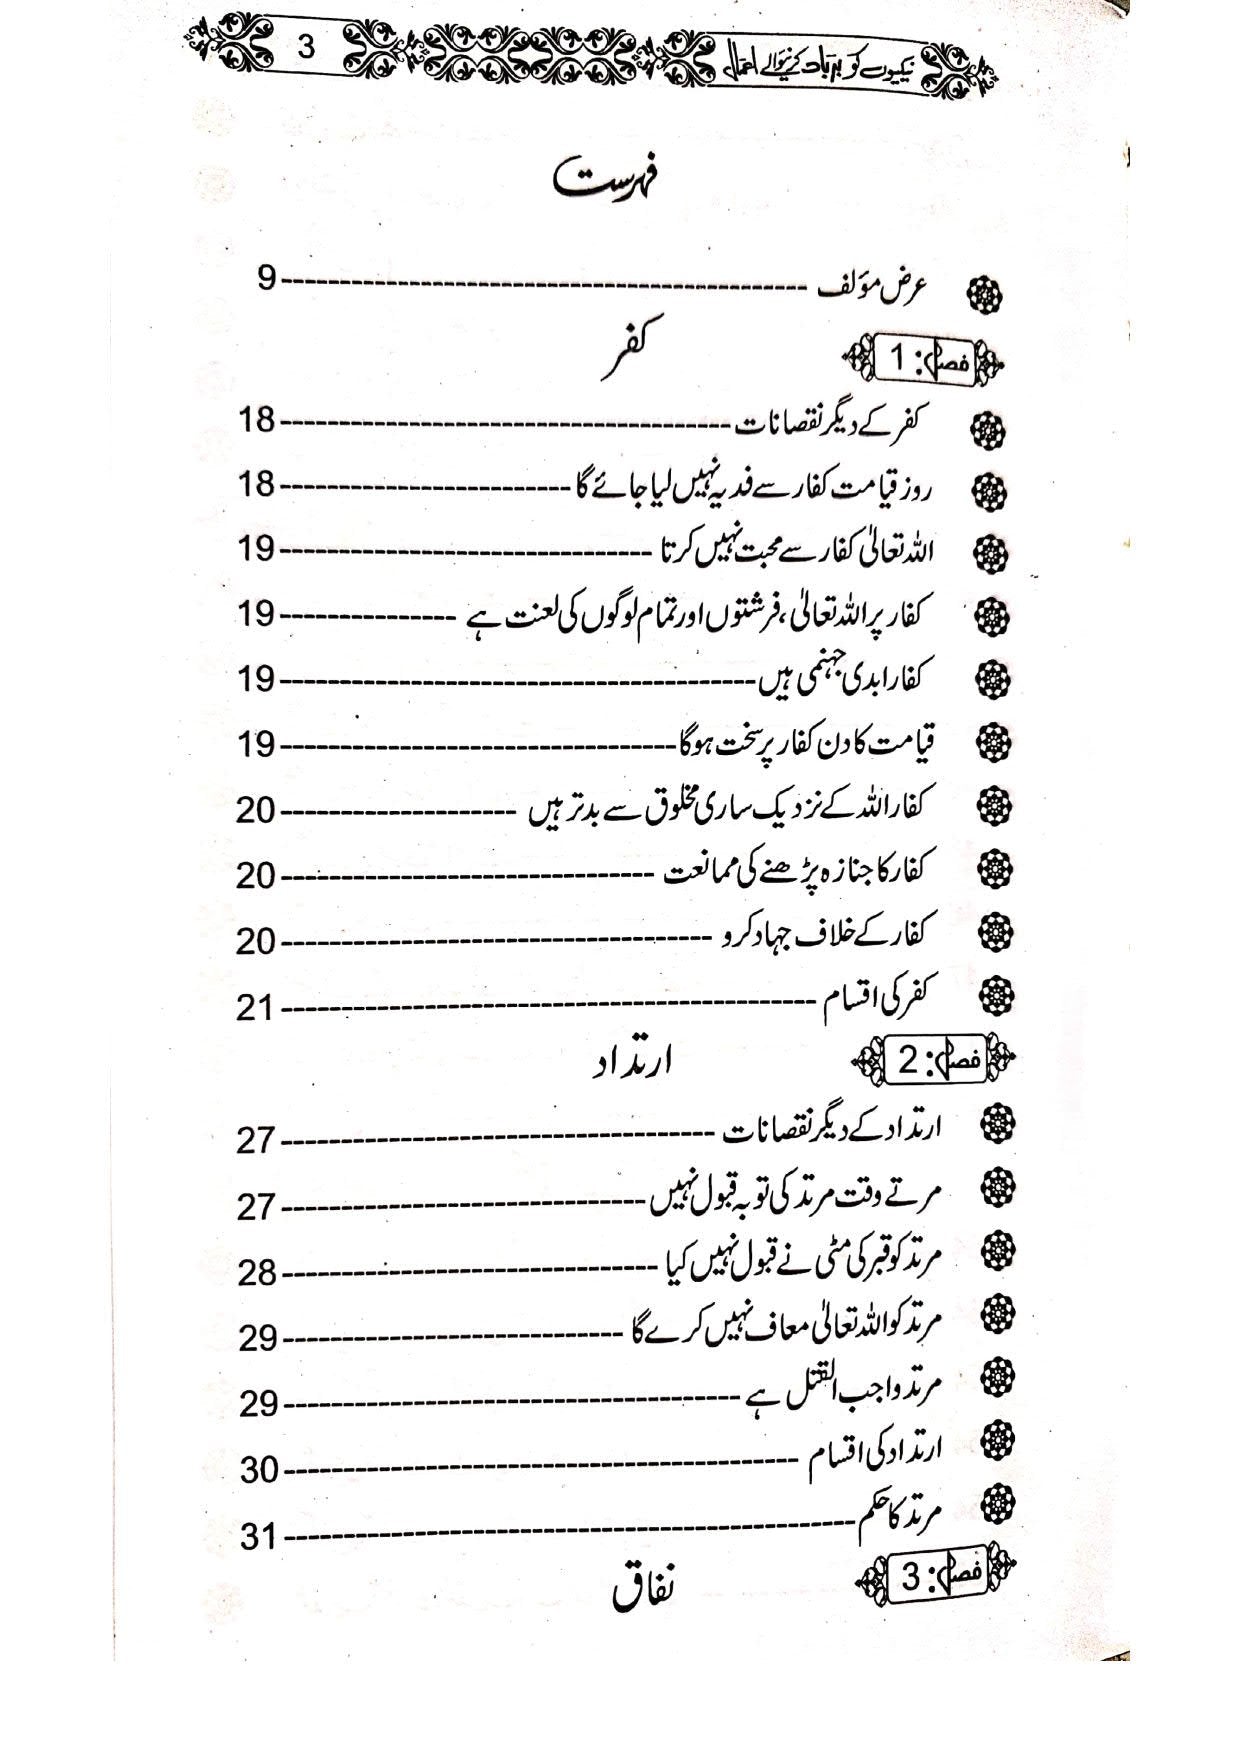 نیکیوں کو برباد کرنیوالے اعمال 3
فہرست
عرض مؤلف ---------- 9
فصل: 1 کفر
کفر کے دیگر نقصانات ---------- 18
روز قیامت کفار سے فدیہ نہیں لیا جائے گا ---------- 18
اللہ تعالیٰ کفار سے محبت نہیں کرتا ---------- 19
کفار پر اللہ تعالیٰ، فرشتوں اور تمام لوگوں کی لعنت ہے ---------- 19
کفار ابدی جہنمی ہیں ---------- 19
قیامت کا دن کفار پر سخت ہوگا ---------- 19
کفار اللہ کے نزدیک ساری مخلوق سے بدتر ہیں ---------- 20
کفار کا جنازہ پڑھنے کی ممانعت ---------- 20
کفار کے خلاف جہاد کرو ---------- 20
کفر کی اقسام ---------- 21
فصل: 2 ارتداد
ارتداد کے دیگر نقصانات ---------- 27
مرتے وقت مرتد کی توبہ قبول نہیں ---------- 27
مرتد کو قبر کی مٹی نے قبول نہیں کیا ---------- 28
مرتد کو اللہ تعالیٰ معاف نہیں کرے گا ---------- 29
مرتد واجب القتل ہے ---------- 29
ارتداد کی اقسام ---------- 30
مرتد کا حکم ---------- 31
فصل: 3 نفاق